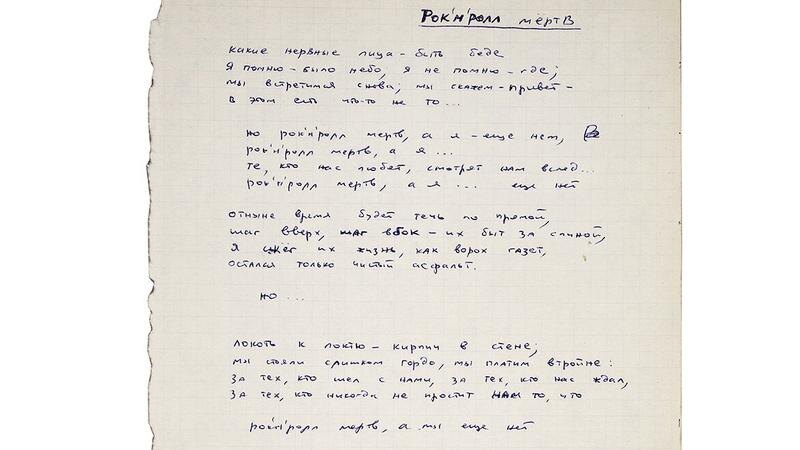 Рок'н'ролл мертв
какие нервные лица – быть беде
Я помню – было небо, я не помню – где;
мы встретимся снова; мы скажем – привет –
в этом есть что-то не то...
но рок'н'ролл мертв, а я – еще нет,
рок'н'ролл мертв, а я ...
те, кто нас любят, смотрят нам вслед...
рок'н'ролл мертв, а я ... еще нет
отныне время будет течь по прямой,
шаг вверх, шаг вбок – их быт за спиной,
Я сжёг их жизнь, как ворох газет,
остался только чистый асфальт.
но ...
локоть к локтю – кирпич в стене;
мы стояли слишком гордо, мы платим втройне:
за тех, кто шел с нами, за тех, кто нас ждал,
за тех, кто никогда не простит нам то, что
рок'н'ролл мертв, а мы еще нет